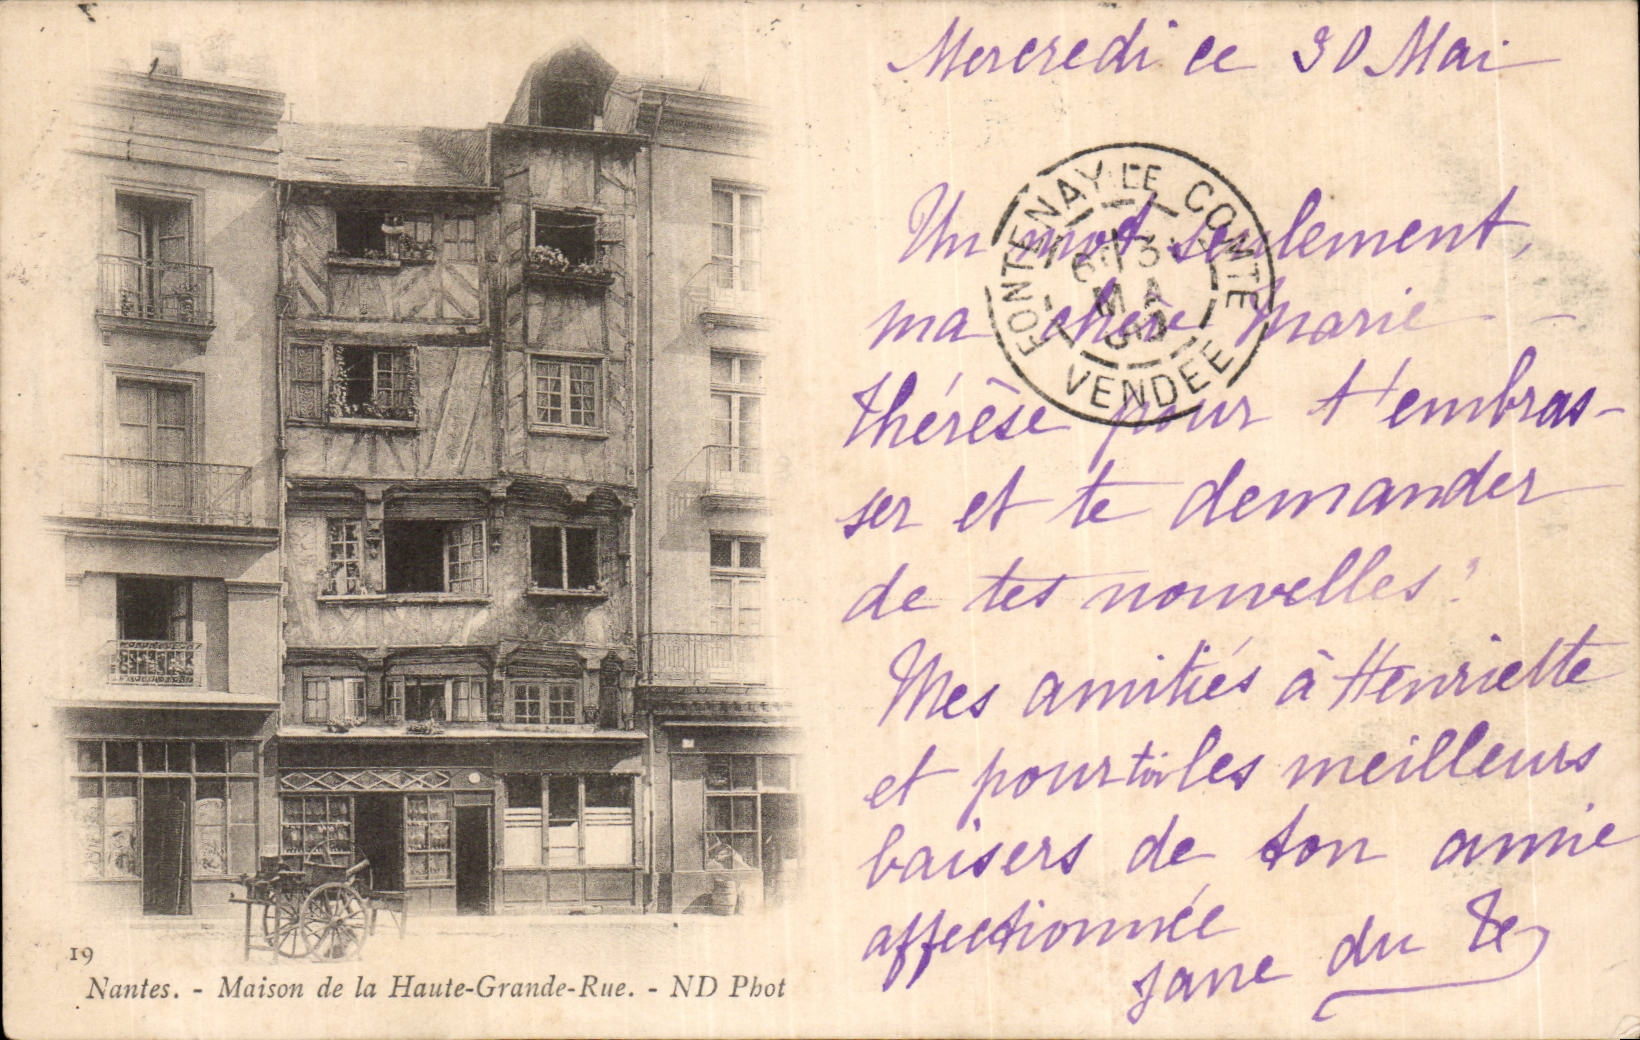 Mercredi ce 30 Mai
Un mot seulement,
ma chère Marie-
Thérèse pour t'embras-
ser et te demander
de tes nouvelles!
Mes amitiés à Henriette
et pour toi les meilleurs
baisers de ton amie
affectionnée
Jane du
FONTENAY-LE-COMTE
VENDÉE
19
Nantes. - Maison de la Haute-Grande-Rue. - ND Phot